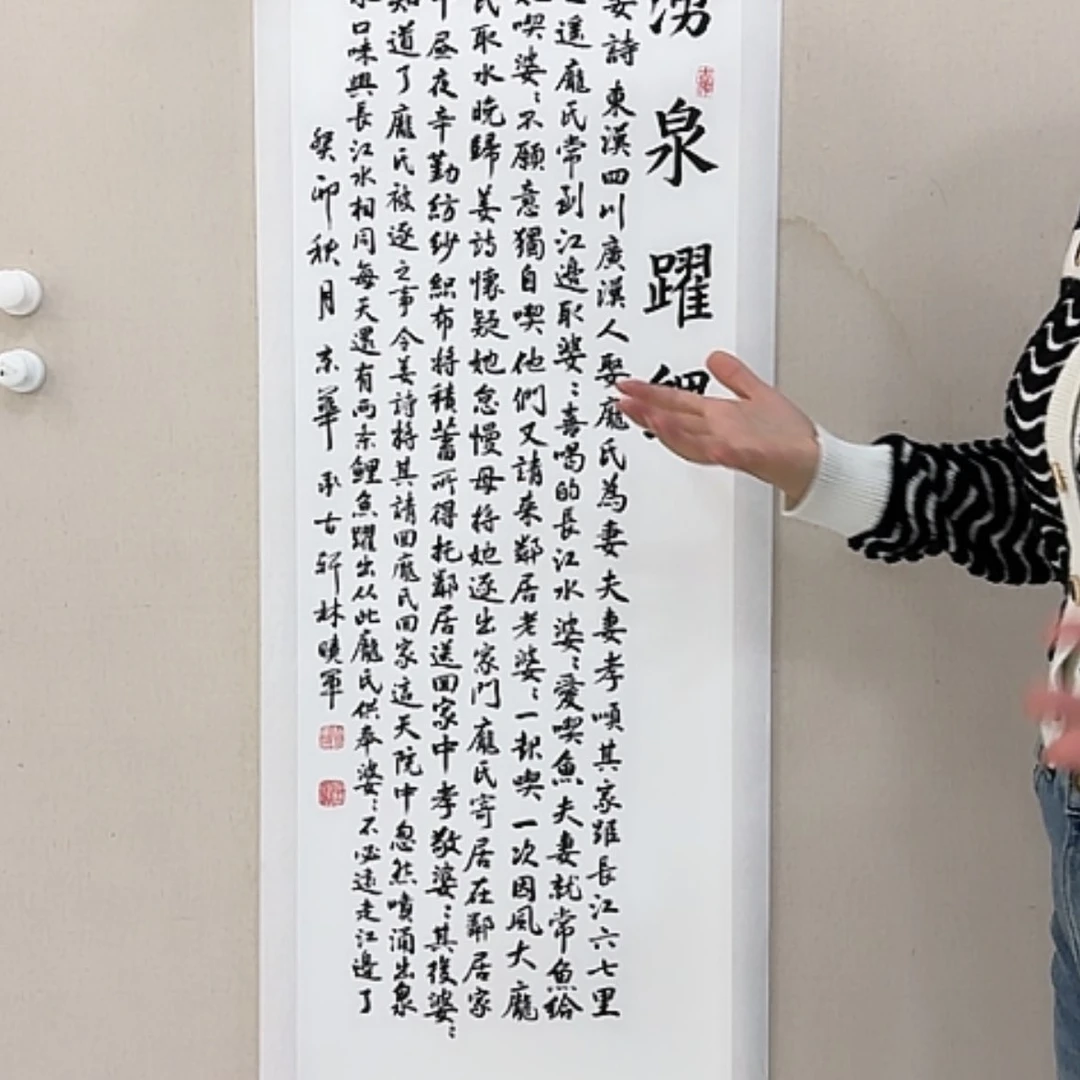 湧泉躍鯉
姜詩東漢四川廣漢人娶龐氏為妻夫妻孝順其家距長江六七里
遥龐氏常到江邊取婆:喜喝的長江水婆:愛喫魚夫妻就常魚給
她喫婆:不願意獨自喫他們又請來鄰居老婆:一起喫一次因風大龐
氏取水晚歸姜詩懷疑她怠慢母將她逐出家門龐氏寄居在鄰居家
中昼夜辛勤紡紗織布將積蓄所得托鄰居送回家中孝敬婆:其後婆:
知道了龐氏被逐之事令姜詩將其請回龐氏回家這天院中忽然噴涌出泉
水口味與長江水相同每天還有两条鯉魚躍出从此龐氏供奉婆:不必遠走江邊了
癸卯秋月 京華承古軒林曉軍